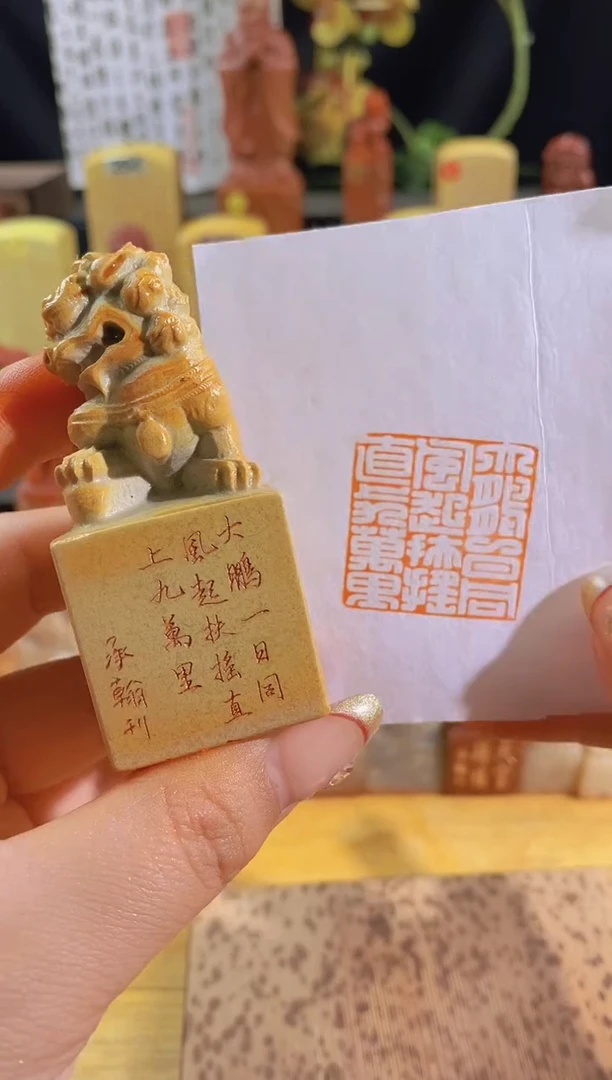 大鵬一日同
風起扶搖直
上九萬里
承翰刊
大鵬一日同
風起扶搖
直上九萬里